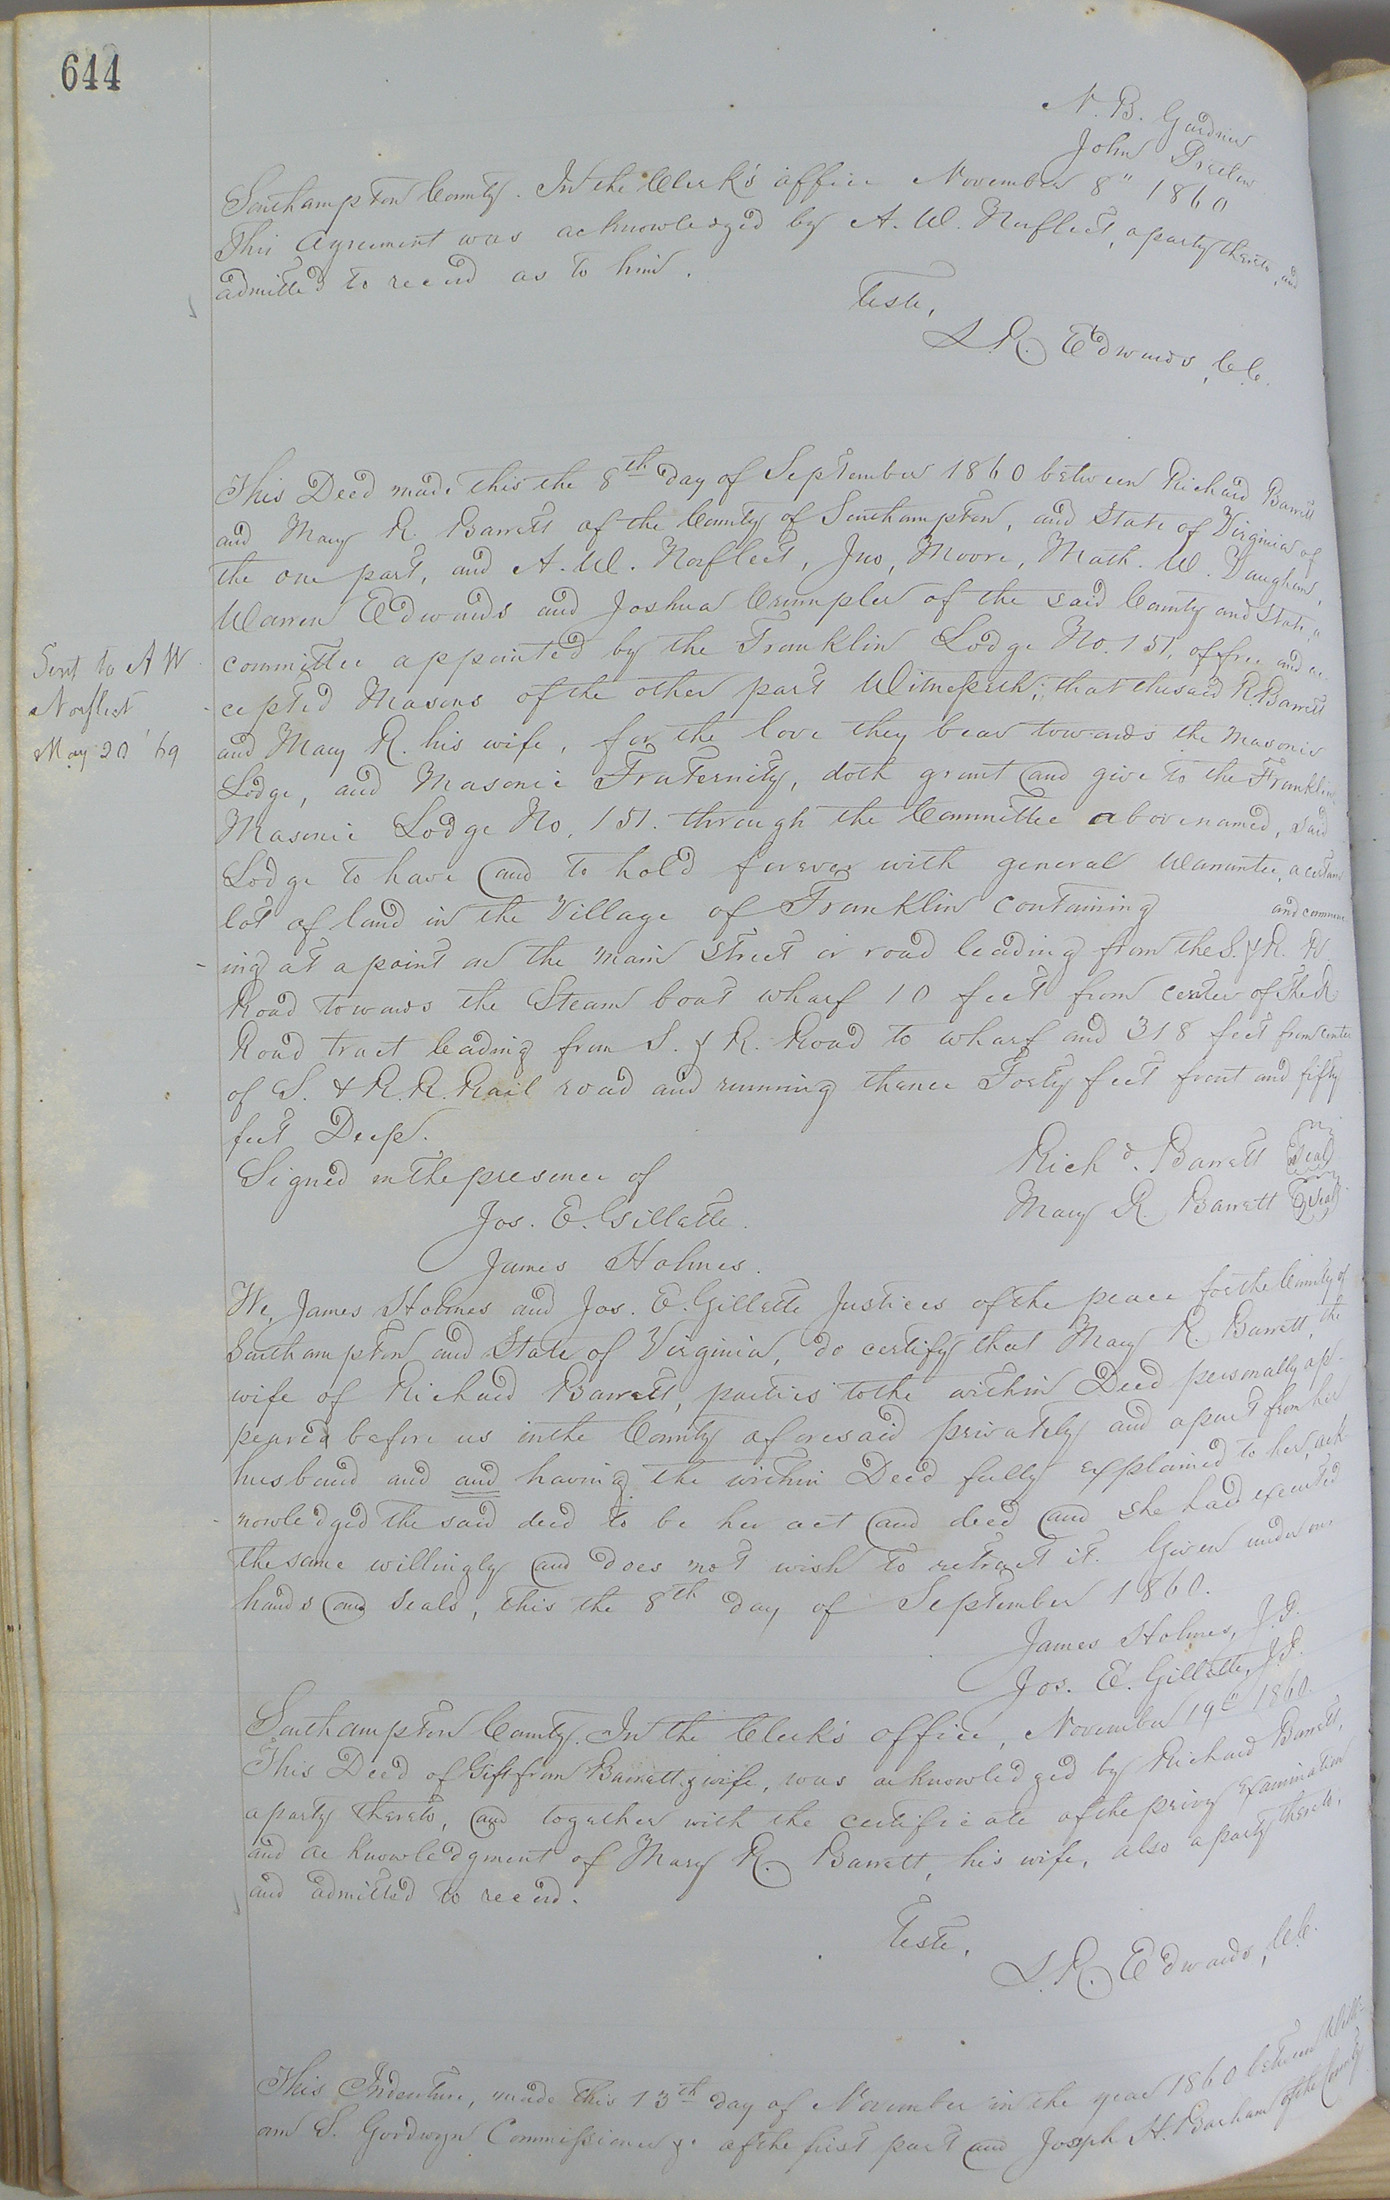 644
N. B. Gardner
John Pretlow
Southampton County. In the Clerk's office November 8" 1860
This Agreement was acknowledged by A. W. Norfleet, a party thereto, and
admitted to record as to him.
Teste,
L. R. Edwards, C.C.
This Deed made this the 8th day of September 1860 between Richard Barrett
and Mary R. Barrett of the County of Southampton, and State of Virginia of
the one part, and A. W. Norfleet, Jno, Moore, Math. W. Vaughan,
Warren Edwards and Joshua Crumpler of the said County and State, a
committee appointed by the Franklin Lodge No. 151, of free and ac-
cepted Masons of the other part Witnesseth; that the said R. Barrett
and Mary R. his wife, for the love they bear towards the Masonic
Lodge, and Masonic Fraternity, doth grant and give to the Franklin
Masonic Lodge No. 151. through the Committee above named, said
Lodge to have and to hold forever with general Warrantee, a certain
lot of land in the Village of Franklin containing and commenc
ing at a point on the main street or road leading from the S. & R. R.
Road towards the Steam boat wharf 10 feet from center of the R
Road tract leading from S. & R. Road to wharf and 318 feet from center
of S. & R. R. Rail road and running thence Forty feet front and fifty
feet Deep.
Signed in the presence of
Richd. Barrett Seal
Jos. E. Gillette.
Mary R. Barrett Seal
James Holmes.
We, James Holmes and Jos. E. Gillette Justices of the peace for the County of
Southampton and State of Virginia, do certify that Mary R. Barrett, the
wife of Richard Barrett, parties to the within Deed personally ap-
peared before us in the County aforesaid privately and apart from her
husband and and having the within Deed fully explained to her, ack-
nowledged the said deed to be her act and deed and she had executed
the same willingly and does not wish to retract it. Given under our
hands and seals, this the 8th day of September 1860.
James Holmes, J.P.
Jos. E. Gillette, J.P.
Southampton County. In the Clerk's office, November 19th 1860.
This Deed of Gift from Barrett & wife, was acknowledged by Richard Barrett,
a party thereto, and together with the certificate of the privy examination
and acknowledgment of Mary R. Barrett, his wife, also a party thereto,
and admitted to record.
Teste,
L. R. Edwards, C.C.
This Indenture, made this 13th day of November in the year 1860 between Willi-
am S. Goodwyn Commissioner &c of the first part and Joseph H. Barham of the County
Sent to A W
Norfleet
May 20 '69